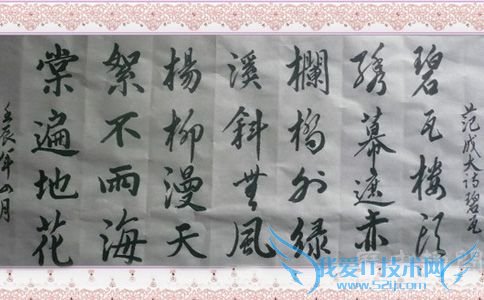 范成大诗碧瓦
碧瓦楼头
绣幕遮赤
欄橋外緑
溪斜無風
楊柳漫天
絮不雨海
棠遍地花
壬辰年四月
我爱IT技术网
www.52ij.com